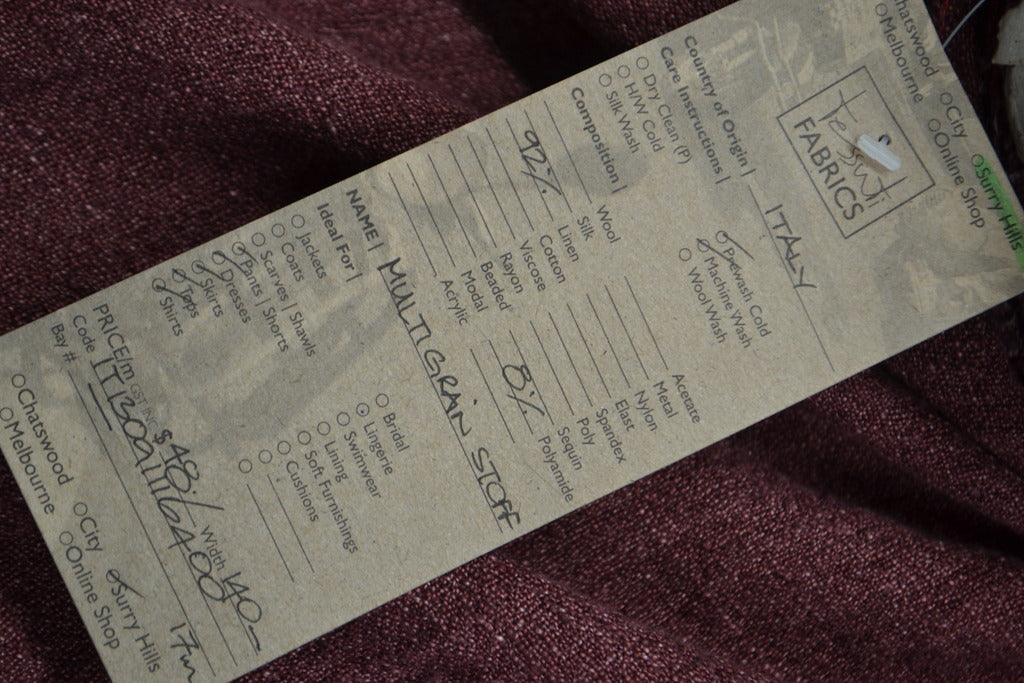 Chatswood
City
Surry Hills
Melbourne
Online Shop
tessuti
FABRICS
Country of Origin | ITALY
Care Instructions |
Dry Clean (P)
Prewash Cold
H/W Cold
Machine Wash
Silk Wash
Wool Wash
Composition |
Wool
Acetate
Silk
Metal
92% Linen
Nylon
Cotton
Elast
Viscose
Spandex
Rayon
Poly
Beaded
Sequin
Modal
8% Polyamide
Acrylic
NAME | MULTI GRAIN STOFF
Ideal For |
Jackets
Bridal
Coats
Lingerie
Scarves | Shawls
Swimwear
Pants | Shorts
Lining
Dresses
Soft Furnishings
Skirts
Cushions
Tops
Shirts
PRICE/m GST INC $48./ Width 140-
Code
Bay #
17m
Chatswood
City
Surry Hills
Melbourne
Online Shop